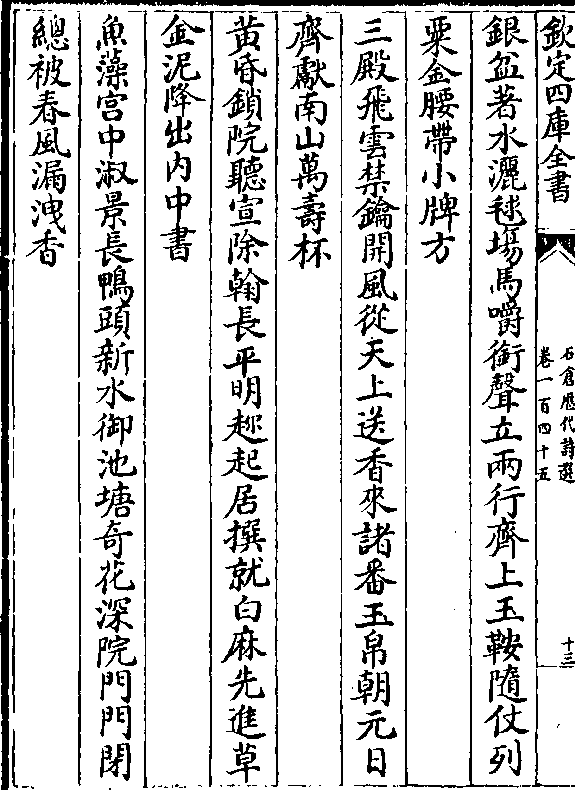 欽定四庫全書
石倉歷代詩選
卷一百四十五
十三
銀盆著水灑毬場馬嚼銜聲立兩行齊上玉鞍隨仗列
栗金腰帶小牌方
三殿飛雲禁鑰開風從天上送香來諸番玉帛朝元日
齊獻南山萬壽杯
黃昏鎖院聽宣除翰長平明趍起居撰就白麻先進草
金泥降出內中書
魚藻宮中淑景長鴨頭新水御池塘奇花深院門門閉
總被春風漏洩香